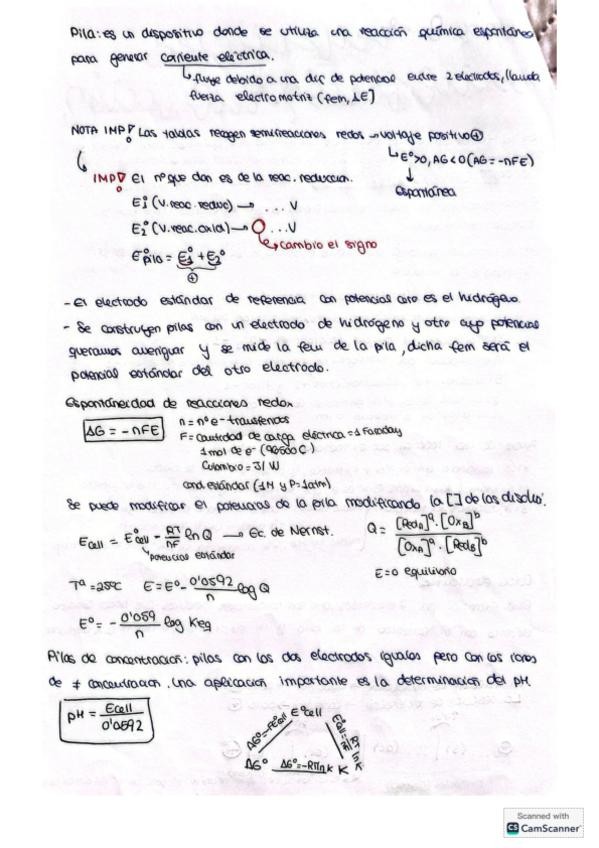 Pila: es un dispositivo donde se utiliza una reacción química espontánea
para generar corriente eléctrica.
↳ fluye debido a una dif de potencial entre 2 electrodos, llamada
fuerza electromotriz (fem, ΔE]
NOTA IMP! Las tablas recogen semirreacciones redox → voltaje positivo ⊕
↳ E°>0, ΔG<0 (ΔG = -nFE)
↓
espontánea
IMP! El nº que dan es de la reac. reduccion.
E₁° (v. reac. reduc) → ... V
E₂° (v. reac. oxid) → O ... V
↳ cambio el signo
E°pila = E₁° + E₂°
⊕
- El electrodo estándar de referencia con potencial cero es el hidrógeno.
- Se construyen pilas con un electrodo de hidrógeno y otro cuyo potencial
queramos averiguar y se mide la fem de la pila, dicha fem será el
potencial estándar del otro electrodo.
Espontáneidad de reacciones redox
ΔG = - nFE
n = nº e- transferidos
F = cantidad de carga eléctrica = 1 Faraday
1 mol de e- (96500 C)
Culombio = J/V
cond. estándar (1M y P=1atm)
Se puede modificar el potencial de la pila modificando la [ ] de las disoluc.
Ecell = E°cell - RT/nF ln Q → Ec. de Nernst.
↳ potencial estándar
Q = [RedA]ᵃ · [OxB]ᵇ / [OxA]ᵃ · [RedB]ᵇ
E=0 equilibrio
Tª = 25ºC E = E° - 0'0592/n log Q
E° = - 0'059/n log Keq
Pilas de concentracion: pilas con los dos electrodos iguales pero con los iones
de ≠ concentracion. Una aplicacion importante es la determinacion del pH.
pH = Ecell/0'0592
ΔG°=-nFE°cell E°cell E°cell = RT/nF ln K
ΔG° ΔG°=-RTlnK K
Scanned with
CS CamScanner